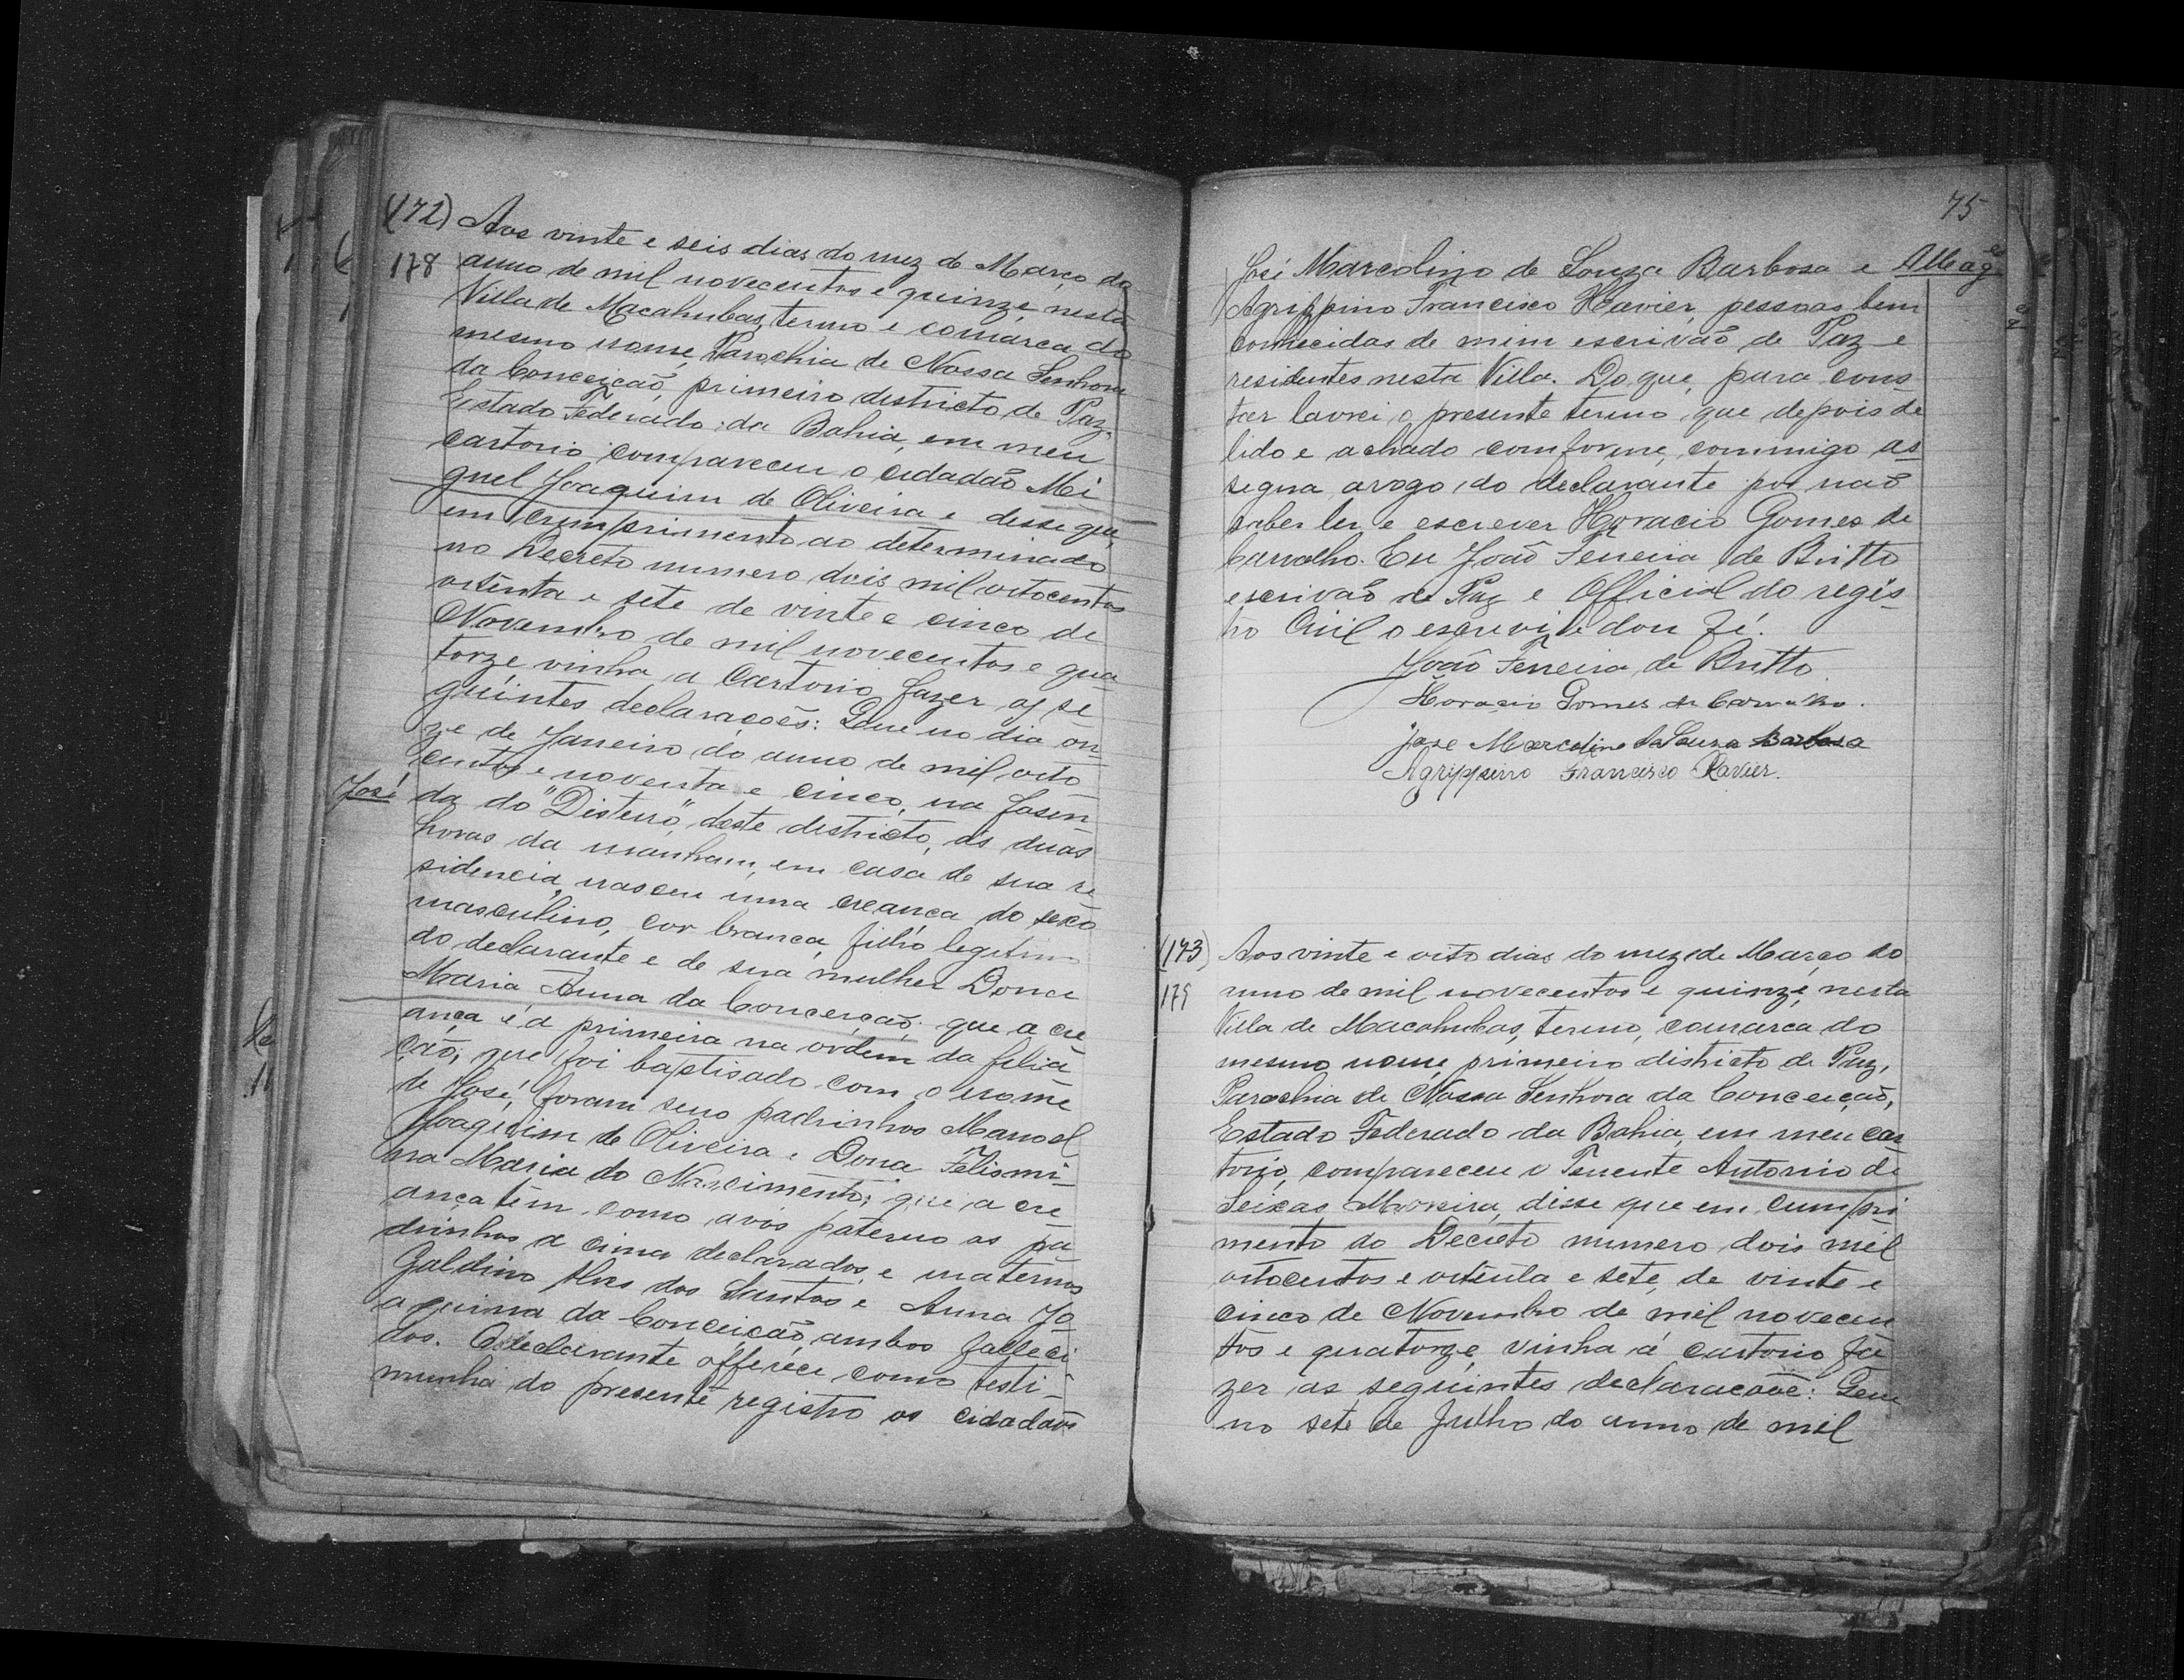 (172) Aos vinte e seis dias do mez de Março do
178 anno de mil novecentos e quinze, nesta
Villa de Macahubas, termo e comarca do
mesmo nome, Parochia de Nossa Senhora
da Conceição, primeiro districto de Paz,
Estado Federado da Bahia, em meu
cartorio compareceu o cidadão Mi
guel Joaquim de Oliveira e disse que,
em cumprimento ao determinado
no Decreto numero dois mil oitocentos
oitenta e sete de vinte e cinco de
Novembro de mil novecentos e qua-
torze, vinha a Cartorio fazer as se
guintes declarações: Que no dia on-
ze de Janeiro do anno de mil oito
centos e noventa e cinco, na fasen
José da do "Disterro", deste districto, ás duas
horas da manham, em casa de sua re
sidencia, nasceu uma creança do sexo
masculino, cor branca, filho legitimo
do declarante e de sua mulher Dona
Maria Anna da Conceição; que a cre
ança é a primeira na ordem da felia
ção; que foi baptisado com o nome
de José, foram seus padrinhos Manoel
Joaquim de Oliveira e Dona Felismi-
na Maria do Nascimento; que a cre
ança tem como avós paterno os pa
drinhos a cima declarados, e maternos
Galdino Alves dos Santos e Anna Jo
aquina da Conceição, ambos falleci
dos. O declarante offerece como testi-
munha do presente registro os cidadãos
75
José Marcolino de Souza Barbosa e
Agrippino Francisco Xavier, pessoas bem
conhecidas de mim escrivão de Paz e
residentes nesta Villa. Do que, para cons-
tar lavrei o presente termo, que depois de
lido e achado comforme, commigo as
segna arogo do declarante por não
saber ler e escrever Horacio Gomes de
Carvalho. Eu João Ferreira de Britto
escrivão de Paz e Official do regis-
tro Civil o escrevi, e dou fé.
João Ferreira de Britto
Horacio Gomes de Carvalho.
jose Marcolino de Souza Barbosa
Agrippino Francisco Xavier.
(173) Aos vinte e oito dias do mez de Março do
179 anno de mil novecentos e quinze, nesta
Villa de Macahubas, termo, comarca do
mesmo nome, primeiro districto de Paz,
Parochia de Nossa Senhora da Conceição,
Estado Federado da Bahia, em meu car
torio, compareceu o Tenente Antonio de
Seixas Moreira, disse que em cumpri-
mento do Decreto numero dois mil
oitocentos e oitenta e sete, de vinte e
cinco de Novembro de mil novecen
tos e quatorze, vinha á cartorio fa
zer as seguintes declaracoõe: Que
no sete de Julho do anno de mil